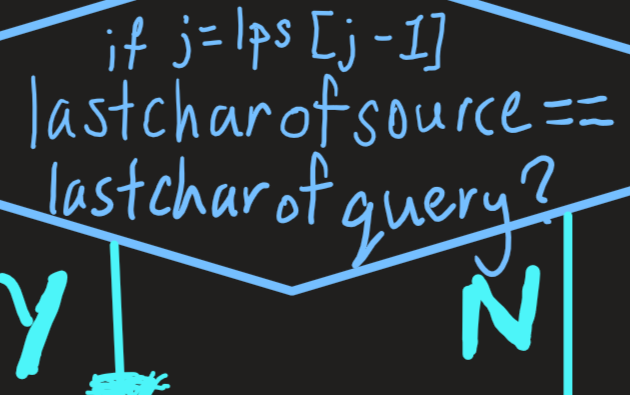 if j=lps [j-1]
lastcharofsource==
lastcharofquery?
Y
N